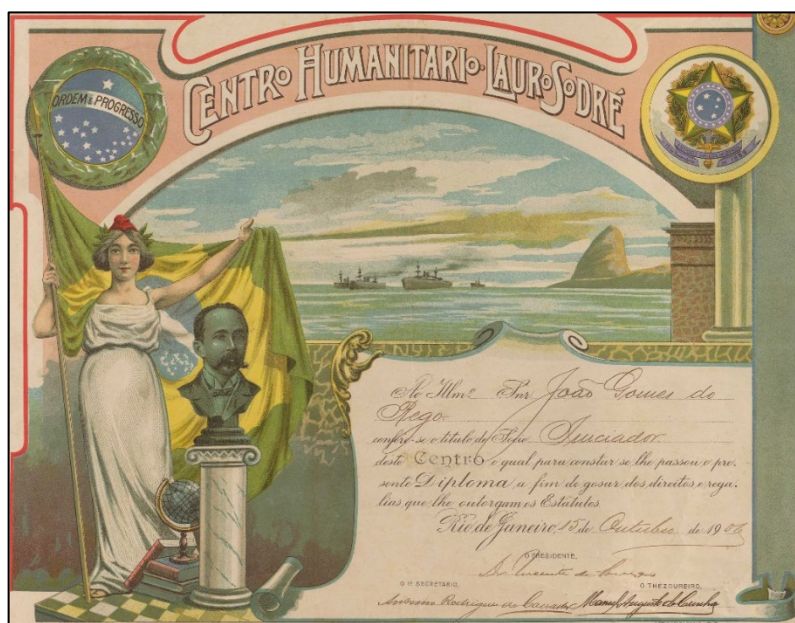 CENTRO HUMANITARIO LAURO SODRÉ
ORDEM E PROGRESSO
Ao Illmº Snr João Gomes do
Rego
confere-se o titulo de Socio Iniciador
deste Centro o qual para constar se lhe passou o pre-
sente Diploma a fim de gosar dos direitos e rega-
lias que lhe outorgam os Estatutos
Rio de Janeiro, 15 de Outubro de 1906
O PRESIDENTE,
O 1º SECRETARIO,
O THEZOUREIRO,
Rodrigues Manoel Augusto da Cunha